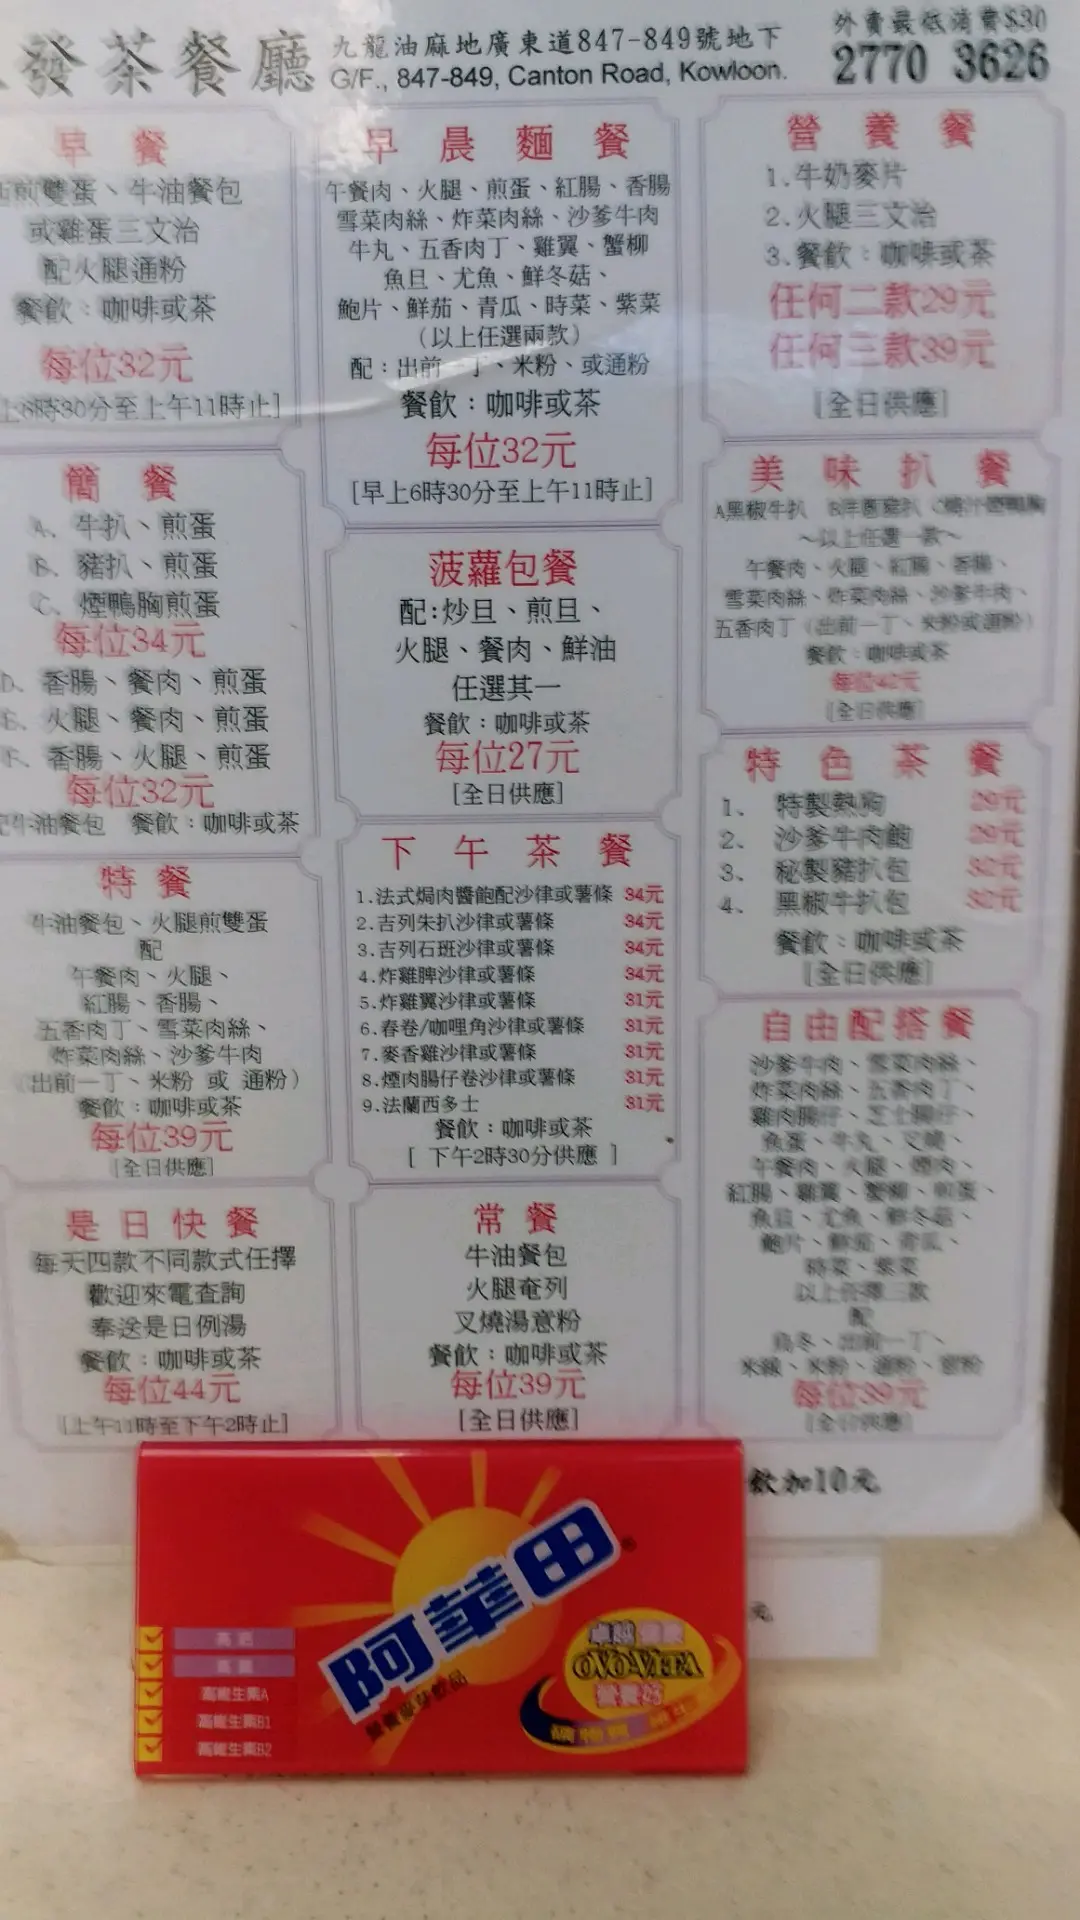 發茶餐廳
九龍油麻地廣東道847-849號地下
G/F., 847-849, Canton Road, Kowloon.
外賣最低消費$30
2770 3626
早餐
煎雙蛋、牛油餐包
或雞蛋三文治
配火腿通粉
餐飲：咖啡或茶
每位32元
上6時30分至上午11時止]
簡餐
A、牛扒、煎蛋
B、豬扒、煎蛋
C、煙鴨胸煎蛋
每位34元
D、香腸、餐肉、煎蛋
E、火腿、餐肉、煎蛋
F、香腸、火腿、煎蛋
每位32元
配牛油餐包 餐飲：咖啡或茶
特餐
牛油餐包、火腿煎雙蛋
配
午餐肉、火腿、
紅腸、香腸、
五香肉丁、雪菜肉絲、
炸菜肉絲、沙爹牛肉
（出前一丁、米粉 或 通粉）
餐飲：咖啡或茶
每位39元
[全日供應]
是日快餐
每天四款不同款式任擇
歡迎來電查詢
奉送是日例湯
餐飲：咖啡或茶
每位44元
[上午11時至下午2時止]
早晨麵餐
午餐肉、火腿、煎蛋、紅腸、香腸
雪菜肉絲、炸菜肉絲、沙爹牛肉
牛丸、五香肉丁、雞翼、蟹柳
魚旦、尤魚、鮮冬菇、
鮑片、鮮茄、青瓜、時菜、紫菜
（以上任選兩款）
配：出前一丁、米粉、或通粉
餐飲：咖啡或茶
每位32元
[早上6時30分至上午11時止]
菠蘿包餐
配:炒旦、煎旦、
火腿、餐肉、鮮油
任選其一
餐飲：咖啡或茶
每位27元
[全日供應]
下午茶餐
1.法式焗肉醬飽配沙律或薯條 34元
2.吉列朱扒沙律或薯條 34元
3.吉列石班沙律或薯條 34元
4.炸雞脾沙律或薯條 34元
5.炸雞翼沙律或薯條 31元
6.春卷/咖哩角沙律或薯條 31元
7.麥香雞沙律或薯條 31元
8.煙肉腸仔卷沙律或薯條 31元
9.法蘭西多士 31元
餐飲：咖啡或茶
[ 下午2時30分供應 ]
常餐
牛油餐包
火腿奄列
叉燒湯意粉
餐飲：咖啡或茶
每位39元
[全日供應]
營養餐
1.牛奶麥片
2.火腿三文治
3.餐飲：咖啡或茶
任何二款29元
任何三款39元
[全日供應]
美味扒餐
A黑椒牛扒 B洋蔥豬扒 C燒汁煙鴨胸
～以上任選一款～
午餐肉、火腿、紅腸、香腸、
雪菜肉絲、炸菜肉絲、沙爹牛肉、
五香肉丁（出前一丁、米粉或通粉）
餐飲：咖啡或茶
每位42元
[全日供應]
特色茶餐
1、 特製熱狗 29元
2、 沙爹牛肉飽 29元
3、 秘製豬扒包 32元
4、 黑椒牛扒包 32元
餐飲：咖啡或茶
[全日供應]
自由配搭餐
沙爹牛肉、雪菜肉絲、
炸菜肉絲、五香肉丁、
雞肉腸仔、芝士腸仔、
魚蛋、牛丸、叉燒、
午餐肉、火腿、煙肉、
紅腸、雞翼、蟹柳、煎蛋、
魚旦、尤魚、鮮冬菇、
鮑片、鮮茄、青瓜、
時菜、紫菜
以上任擇三款
配
烏冬、出前一丁、
米線、米粉、通粉、意粉
每位39元
[全日供應]
飲加10元
元
阿華田
營養麥芽飲品
高鈣
高鐵
高維生素A
高維生素B1
高維生素B2
OVO-VITA
營養好